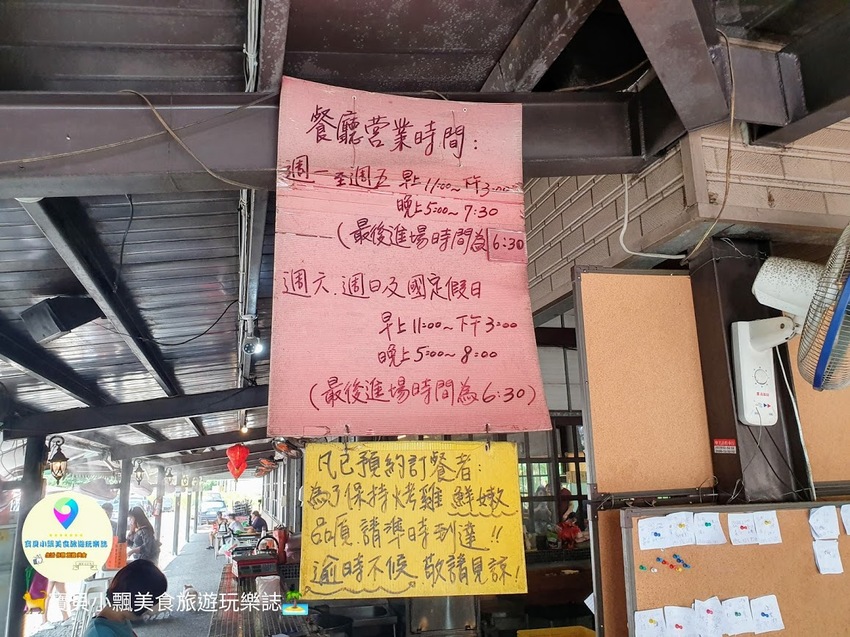 餐廳營業時間:
週一至週五 早上11:00~下午3:00
晚上5:00~7:30
(最後進場時間為6:30
週六.週日及國定假日
早上11:00~下午3:00
晚上5:00~8:00
(最後進場時間為6:30)
凡已預約訂餐者:
為了保持烤雞 鮮嫩
品質.請準時到達!!
逾時不候.敬請見諒!
寶貝小飄美食旅遊玩樂誌
寶貝小飄美食旅遊玩樂誌